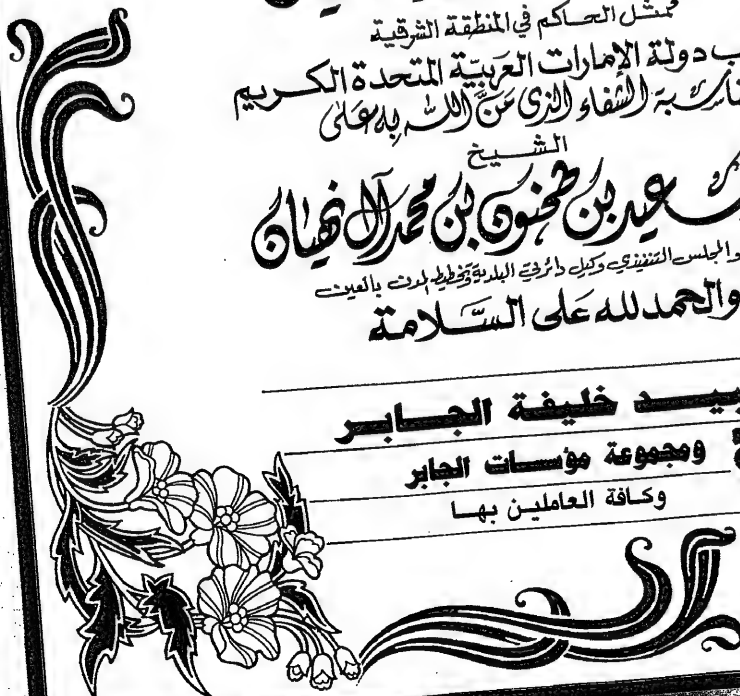 ممثل الحاكم في المنطقة الشرقية
ب دولة الإمارات العربيّة المتحدة الكريم
بة الشفاء الذي مَنَّ الله به على
الشيخ
سعيد بن طحنون بن محمد آل نهيان
والمجلس التنفيذي وكيل دائرة البلدية وتخطيط المدن بالعين
والحمد لله على السَّلامة
بيد خليفة الجابر
ومجموعة مؤسسات الجابر
وكافة العاملين بها